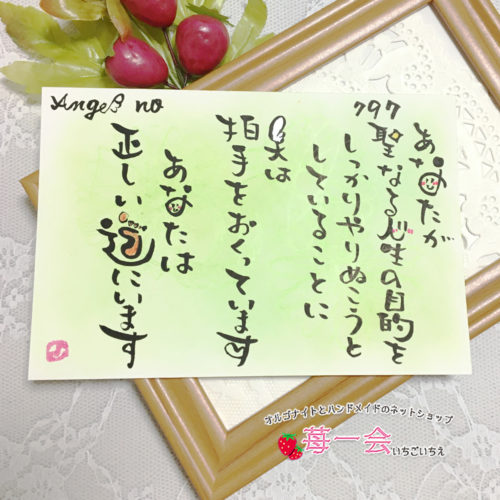 Angel no
797
あなたが
聖なる人生の目的を
しっかりやりぬこうと
していることに
天は
拍手をおくっています
あなたは
正しい道にいます
オルゴナイトとハンドメイドのネットショップ
苺一会 いちごいちえ